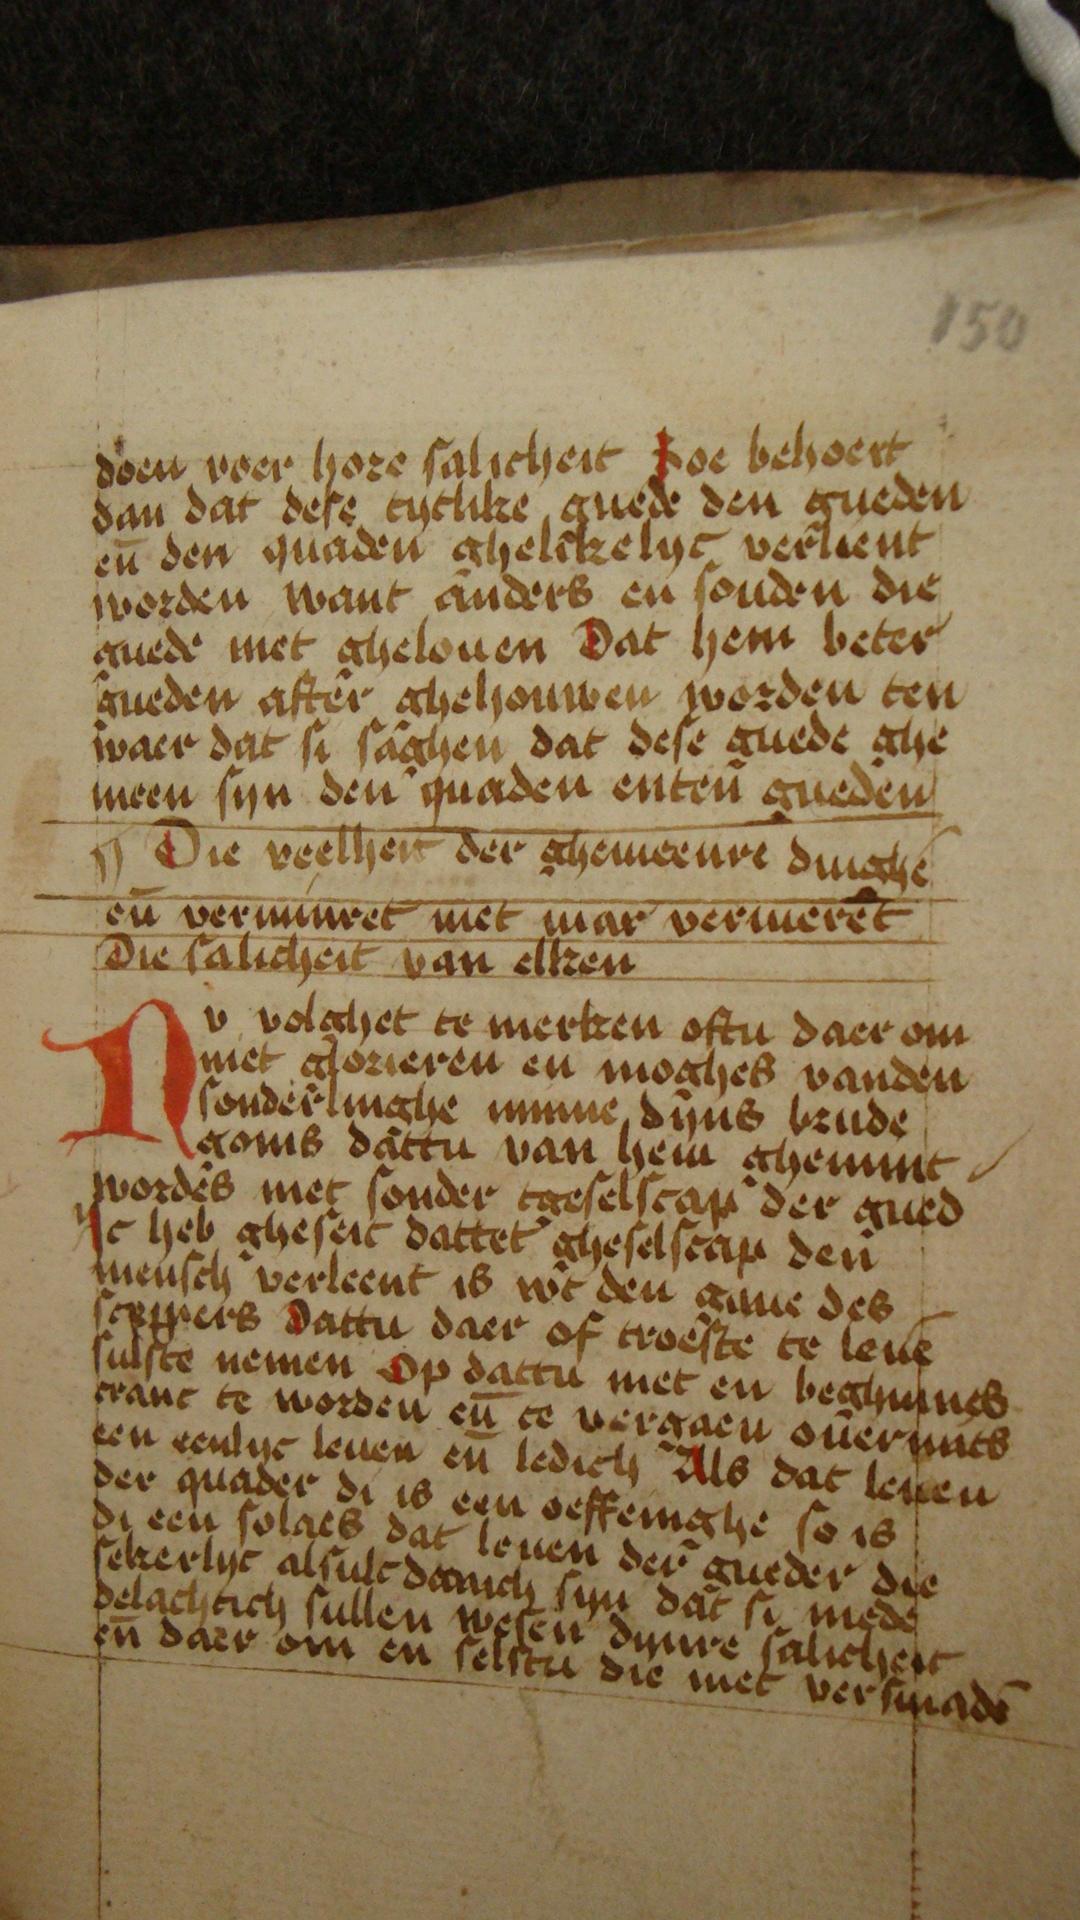 150
doen voer hore salicheit Hoe behoert
dan dat dese tytlike guede den gueden
eñ den quaden ghelikelyc verlient
worden want anders en souden die
guede niet ghelouen Dat hem beter
gueden after ghehouwen worden ten
waer dat si saghen dat dese guede ghe
meen syn den quaden enteñ gueden
¶ Die veelheit der ghemeenre dinghē
eñ verminret niet mar vermeret
Die salicheit van elken
Nv volghet te merken oftu daer om
niet glorieren en moghes vanden
sonderlinghe minne dijns brude
goms dattu van hem ghemint
wordes niet sonder tgeselscap der gued
Ic heb gheseit dattet gheselscap den
mensch verleent is wt den gaue des
sceppers Dattu daer of troeste te leuē
sulste nemen Op dattu niet en beghinnes
cranc te worden eñ te vergaen ouermits
een eenlyc leuen eñ ledich Als dat leuen
der quader di is een oeffeninghe so is
di een solaes dat leuen der gueder die
sekerlyc alsulc syn dat si mede
delachtich sullen wesen dynre salicheit
eñ daer om en selstu die niet versmadē